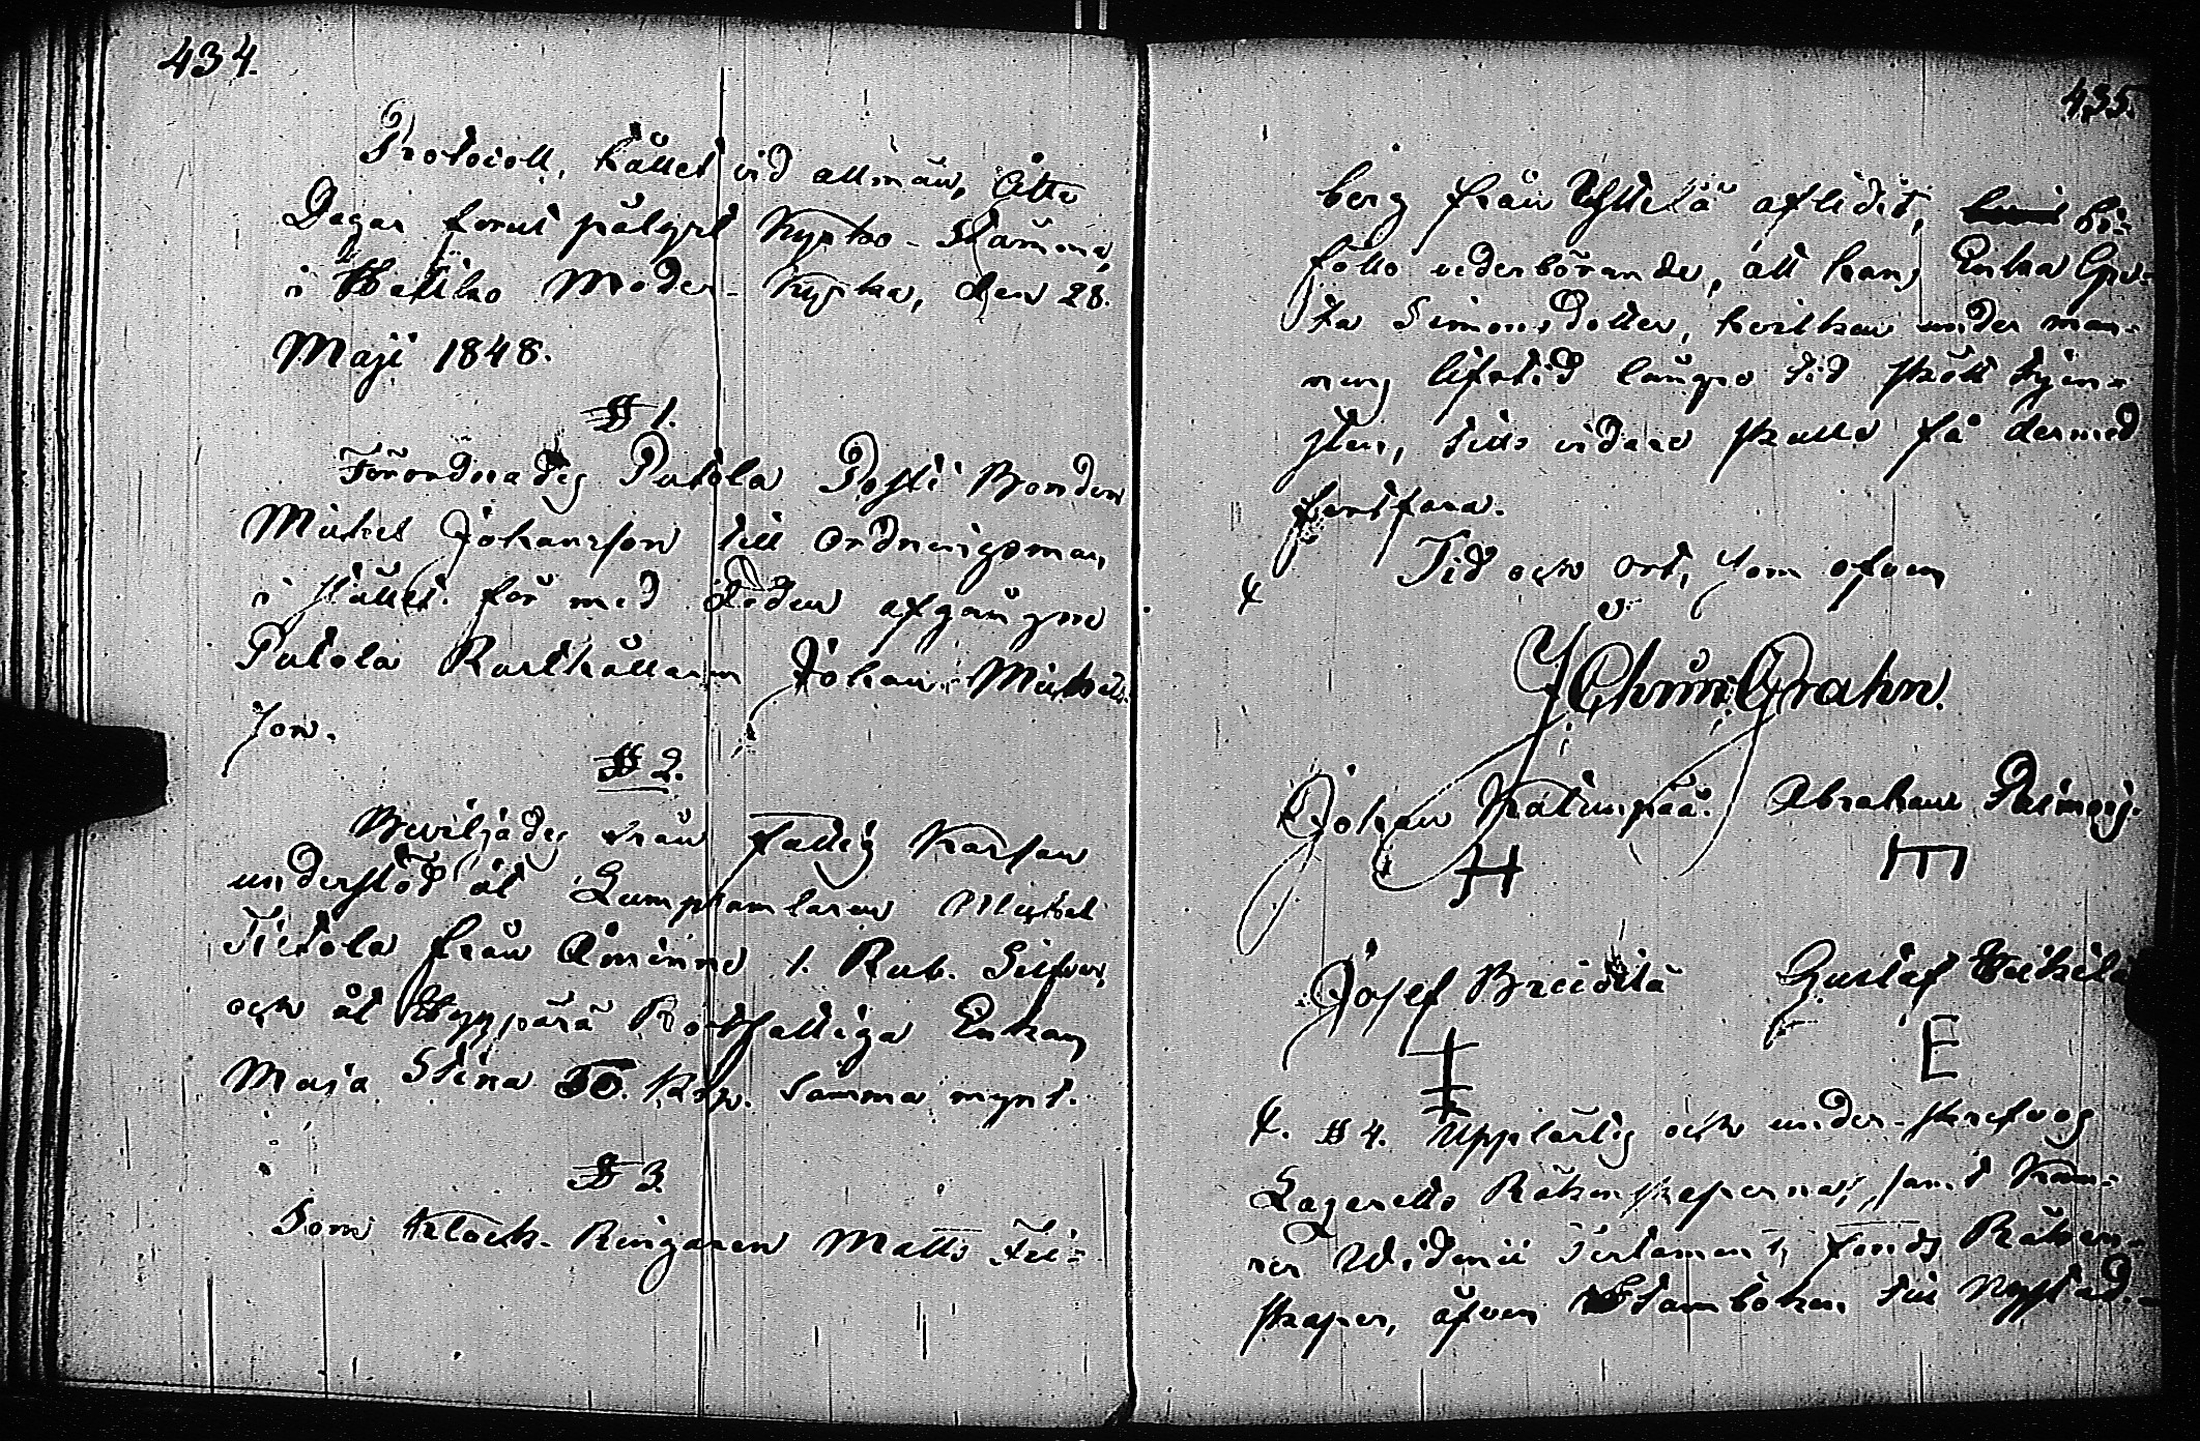 434.
Protocoll, hållet vid allmän, Åtta
Dagar förut pålyst Kyrko-Stämma,
i Moder-Kyrka, den 28.
Maji 1848.
§ 1.
Förordnades Putola Posti Bonden
Michel Johansson till Ordningsman,
i stället för med Döden afgångne
Putola Rusthållaren Johan Michels-
son.
§ 2.
Beviljades från fattig Kassan
understöd åt Lumpsamlaren Michel
Tietola från Åminne 1. Rub. Silfver,
och åt Rotfattiga Enkan
Maja Stina 50. Kop. samma mynt.
§ 3
Som Klock-Ringaren Matts Fri-
435.
berg från aflidit, bi-
föllo vederbörande, att hans Enka Gre-
ta Simonsdotter, hvilken under man-
nens lifstid längre tid skött tjen-
sten, tills vidare skulle få dermed
fortfara.
Tid och ort, som ofvan
J Chrin: Grahn.
Johan Katinpää. Abraham
H m
Josef Breidilä Gustaf Weikkilä
E
§ 4. Upplästes och under-skrefvos
Lazaretts Räkenskaperna, samt Kam-
rer Widenii Testaments fonds Räken-
skaper, äfven Stamboken till Nystad.-